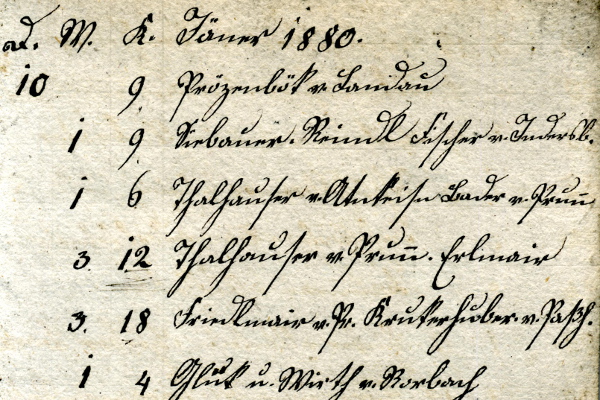 D. M. K. Jäner 1880.
10 9 Prözenbök v. Landau
1 9 Siebauer. Reindl Fischer v. Indersb.
1 6 Thalhauser v. Bader v. Prunn
3. 12 Thalhauser v. Prunn. Erlmair
3. 18 Friedlmair v. Pr. Krukerhuber. v. Paßh.
1 4 Glük u. Wirth v. Rorbach